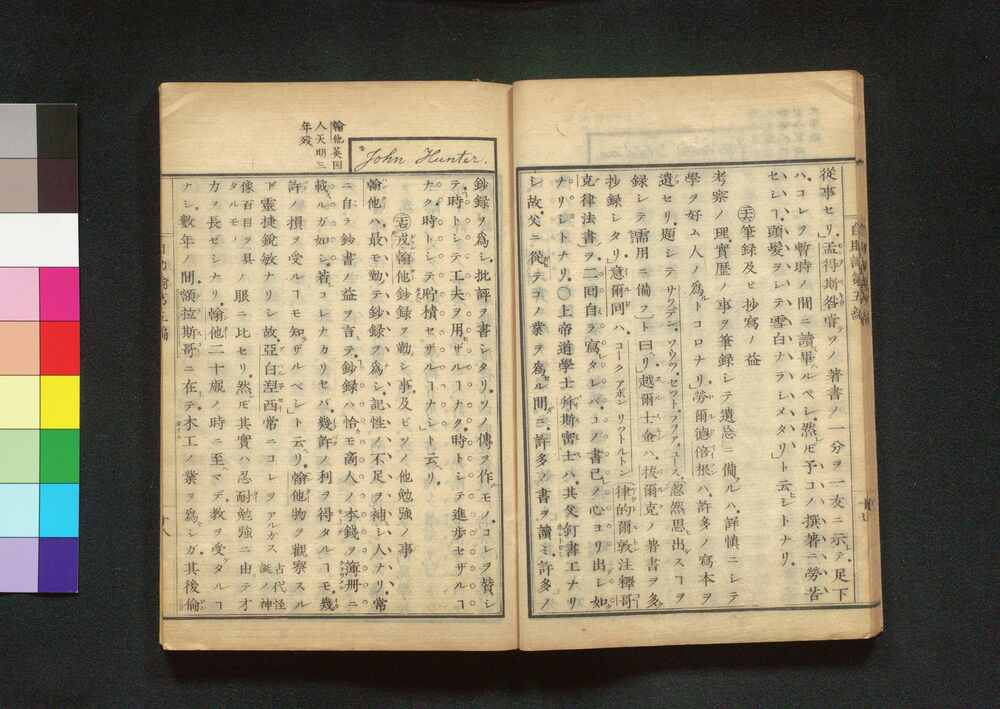 從事セリ、孟得斯咎常ツノ著書ノ一分ヲ一友ニ示テ、足下
ハ、コレヲ暫時ノ間ニ讀畢ルベシ、然ドモ予コハ、撰著ニ勞苦
セシヿ、頭髪ヲ、シテ雪白ナラシメタリト云シトナリ、
筆録及ヒ抄寫ノ益
考察ノ理、實歴ノ事ヲ筆録シテ遺忘ニ備ルハ、詳慎ニシテ
學ヲ好ム人ノ爲トコロナリ、勞爾德倍根ハ、許多ノ寫本ヲ
遺セリ、題シテサウデン、ソウツ、セットダウン、フヲア、ユース 忽然思出スヿヲ
録シテ需用ニ備ヲト曰リ、越爾士金ハ、抜爾克ノ書ヲ多
抄録シタリ、意爾同ハ、コーク アポン リツトルトン 律的爾敦注釋哥
克律法書ヲ、二回自ラ寫タレバ、コノ書己ノ心ヨリ出シ如
ナリシトナリ、〇上帝道學士
シ、故父ニ從テコノ業ヲ爲ル間ニ、許多ノ書ヲ讀ミ、許多ノ
John Hunter.
翰他英国
人天明三
年歿
鈔録ヲ爲シ、批評ヲ書シタリ、ソノ傳ヲ作モノ、コレヲ賛シ
テ、時トシテ工夫ヲ用ザルヿナク、時トシテ進歩セザルヿ
ナク、時トシテ貯積セザルヿナシトト云リ、
戎翰他鈔録ヲ勤シ事、及ビソノ他勉強ノ事
翰他ハ、最モ勤テ鈔録ヲ爲シ、記性ノ不足ヲ補シ人ナリ、常
ニ自ラ鈔書ノ益ヲ言テ、鈔録ハ恰モ商人ノ本錢ヲ簿冊ニ
載ルガ如シ、若コレナカリセバ、幾許ノ利ヲ得タルヿモ、幾
許ノ損ヲ受ルヿモ知ザルベシト云リ、翰他物ヲ觀察スル
ヿ靈捷鋭敏ナリシ故、亞白涅西常ニコレヲアルガス 古代怪誕ノ神
像百目ヲ具タルモノノ眼ニ比セリ、然ドモ其實ハ忍耐勉強ニ由テ才
カヲ長ゼシナリ、翰他二十歳ノ時ニ至マデ、教ヲ受タルヿ
ナシ、數年ノ間、額拉斯哥ニ在テ木工ノ業ヲ爲シガ、其後倫